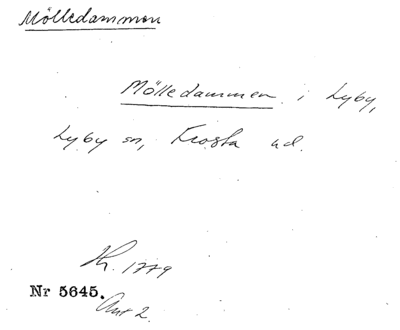 Mölledammen
Mölledammen i Lyby,
Lyby sn, Frosta hd.
1779
Nr 5645.